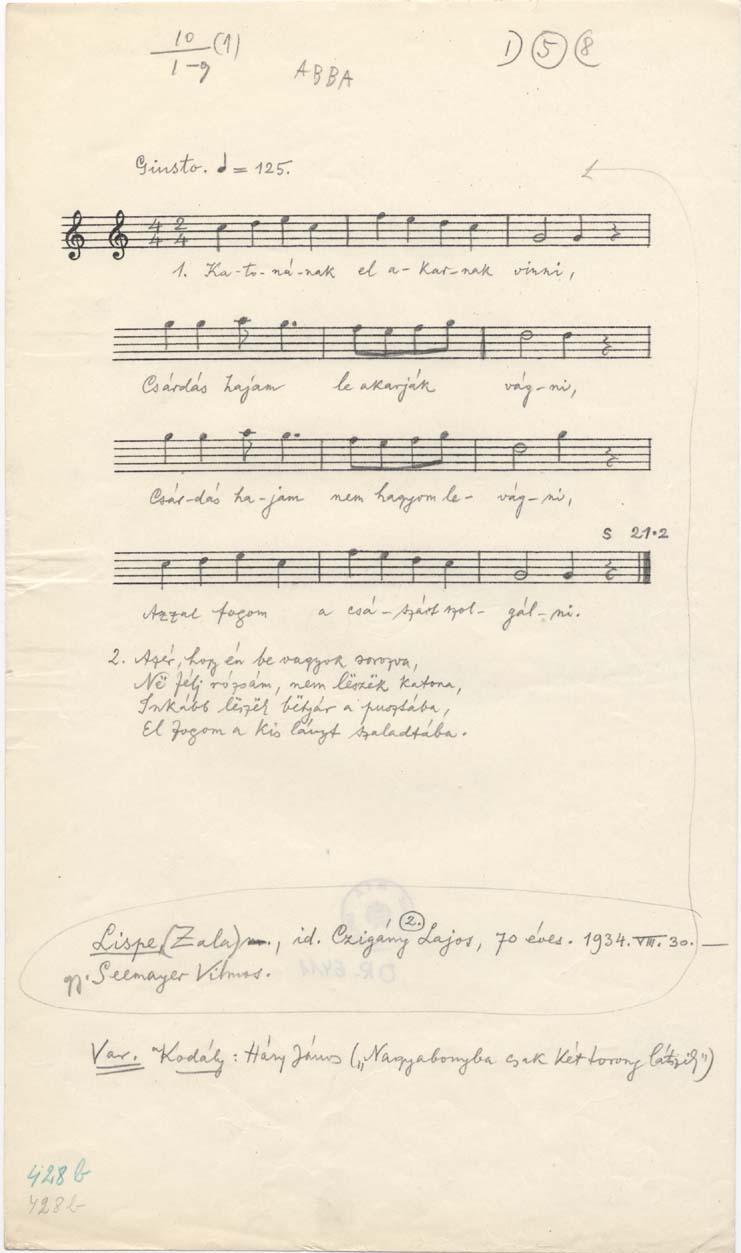 10 (1)
1-9
ABBA
1) 5 8
Giusto. = 125.
4 2
4 4
1. Ka-to-ná-nak el a-kar-nak vinni,
Csárdás hajam le akarják vág-ni,
Csár-dás ha-jam nem hagyom le- vág-ni,
S 21.2
Azzal fogom a csá-szárt szol-gál-ni.
2. Azér, hogy én be vagyok sorozva,
Në félj rózsám, nem lëszëk katona,
Inkább lëszëk bëtyár a pusztába,
El fogom a kis lányt szaladtába.
Lispe, (Zala), id. Czigány 2. Lajos, 70 éves. 1934. VIII. 30. —
gy. Seemayer Vilmos.
Var. Kodály: Háry János („Nagyabonyba csak két torony látszik")
428 b
428 b